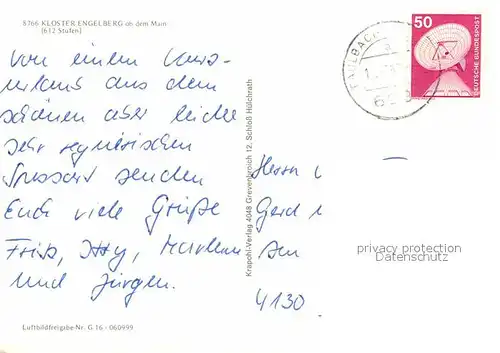 8766 KLOSTER ENGELBERG ob dem Main
(612 Stufen)
Von einem Kurz-
urlaub aus dem
schönen aber leider
sehr regnerischen
Spessart senden
Euch viele Grüße
und Jürgen.
Luftbildfreigabe-Nr. G 16 - 060999
Krapohl-Verlag 4048 Grevenbroich 12, Schloß Hülchrath
50
DEUTSCHE BUNDESPOST
Herrn
Gerd
4130
privacy protection
Datenschutz